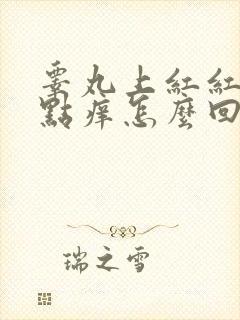 睪丸上紅紅
點痒怎麼回
瑞之雪